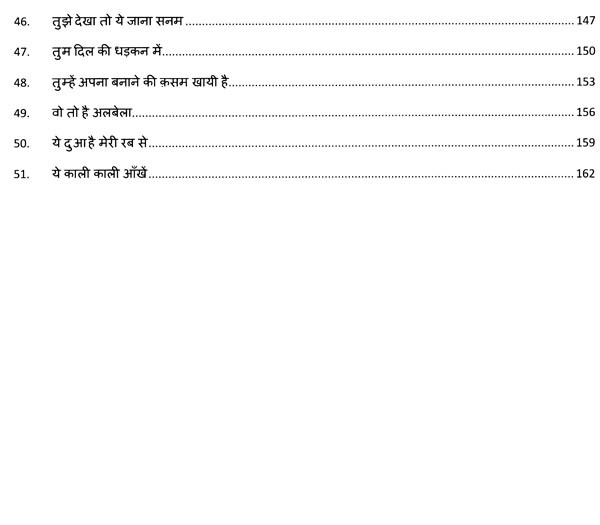 46. तुझे देखा तो ये जाना सनम ........ 147
47. तुम दिल की धड़कन में........ 150
48. तुम्हें अपना बनाने की क़सम खायी है........ 153
49. वो तो है अलबेला........ 156
50. ये दुआ है मेरी रब से........ 159
51. ये काली काली आँखें........ 162